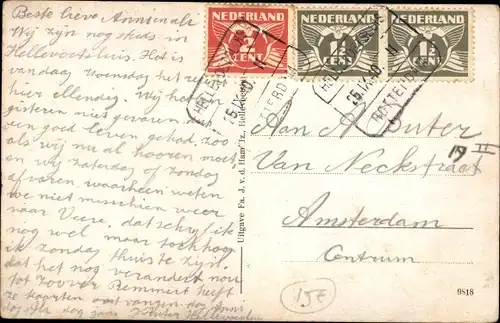 Beste lieve Annie
Wij zijn nog steeds in
Hellevoetsluis. Het is
vandaag Woensdag het
hier ellendig. Wij had
gisteren niet gevaren
een goed leven gehad, zoo
als wij nu al hooren moet
en wij zaterdag of zondag
afvaren waarheen weten
we niet misschien weer
naar Veere, dat schrijf ik
nog wel, maar toch hoop
ik zondag thuis te zijn.
dat het nog verandert nou
tot zoover Remmert heeft
ze kaarten
NEDERLAND
½
CENT
NEDERLAND
1½
CENT
NEDERLAND
1½
CENT
25.IX.40
25.IX.40
ROTTERD
Aan A. Suter
Van Neckstraat
19 II
Amsterdam
Centrum
15E
Uitgave Fa. J. v. d. Ham Tz., Hellevoetsluis
9818